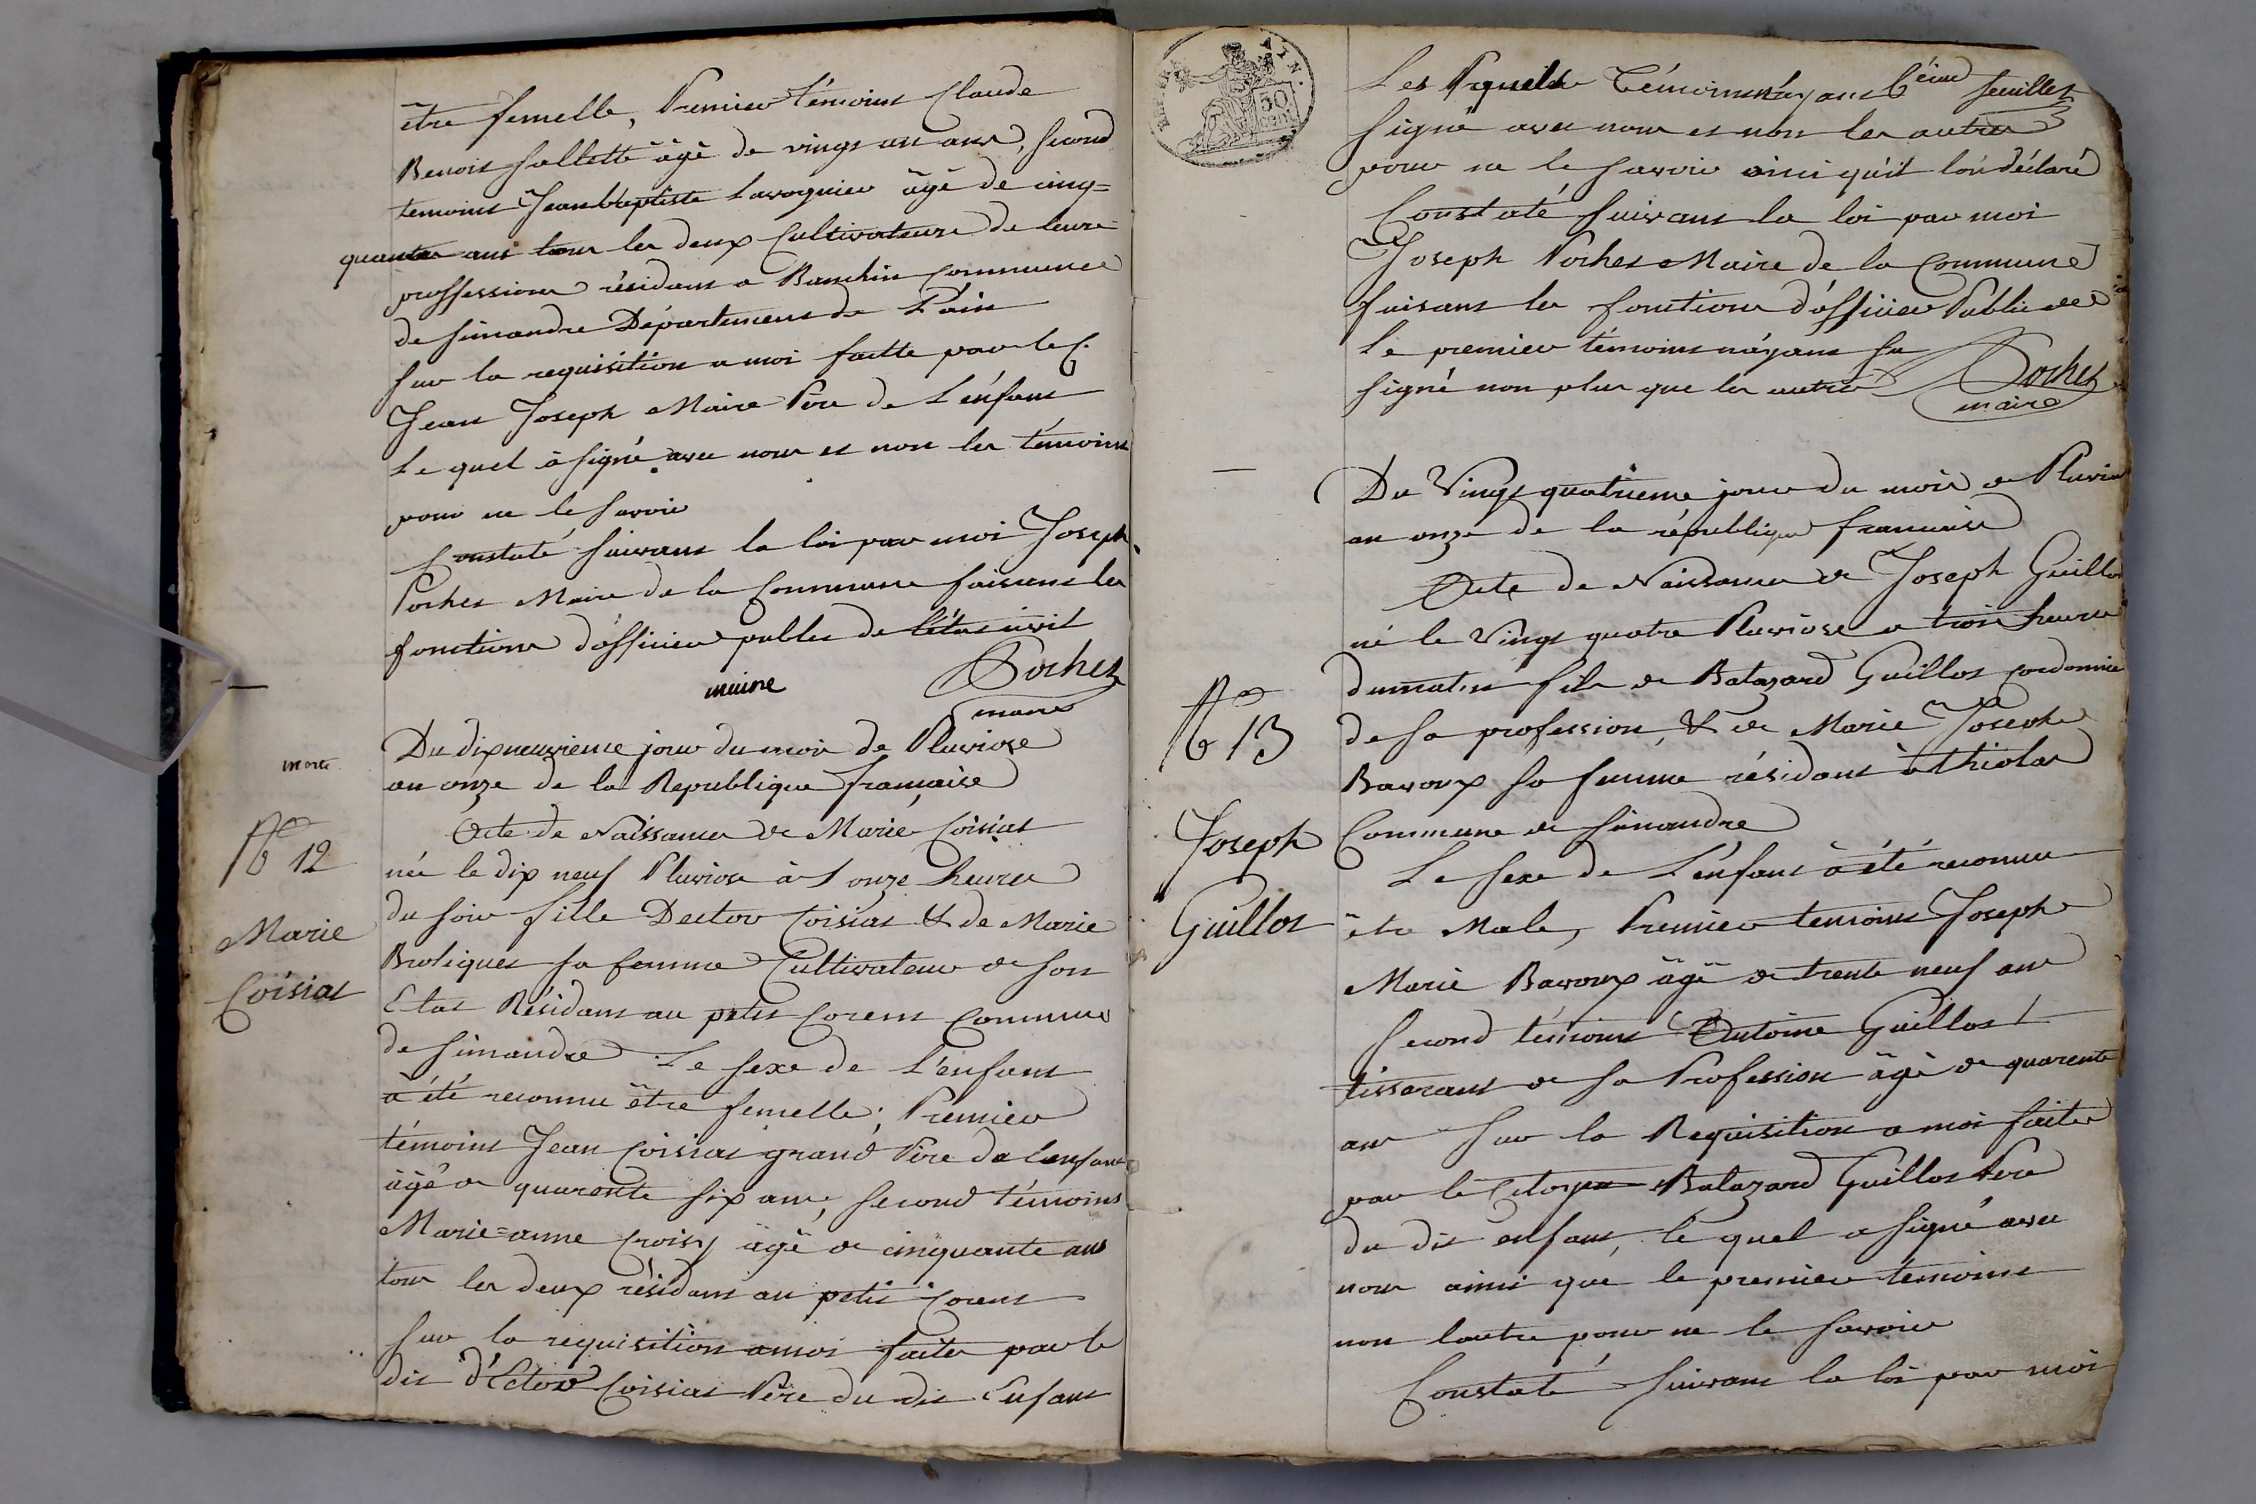 être femelle, Premier témoins Claude
Benois sollette âgé de vingt un ans, second
temoins Jeanbaptiste Lavognier âgé de cinq=
quante ans tous les deux Cultivateurs de leurs
proffessions résidans a Banchin commune
de simandre Département de L'ain
sur la requisition a moi faitte par le C.
Jean Joseph Maire Père de L'énfant
Le quel à signé avec nous et non les témoins
pour ne le savoir
Constaté suivant la loi par moi Joseph
Pochet Maire de la Commune faisant les
fonctions d'officier public de l'état civil
maire
Pochet
maire
Du dixneuvieme jour du mois de Pluviose
an onze de la Republique française
morte
No 12
Marie
Coisiat
Acte de Naissance de Marie Coisiat
née le dix neuf Pluviose à onze heures
du soir fille Dector Coisiat & de Marie
Broliquet sa femme Cultivateur de son
Etat Résidant au petit Corent commune
de simandre Le sexe de L'enfant
à été reconnu être femelle; Premier
témoins Jean Coisiat grand Père de lenfant
âgé de quarente six ans, second témoins
Marie=anne Croisy âgé de cinquante ans
tous les deux résidant au petit Corent
sur la requisition amoi faite par le
dit d'Ector Coisiat Père du dit Enfant
6éime feuillet
Les quels témoins n'ayant
signé avec nous et non les autres
pour ne le savoir ainsi qu'il lon déclaré
Constaté suivant la loi par moi
Joseph Pochet Maire de la Commune
faisant les fonctions d'officier Public
le premier témoins n'ayant su
signé non plus que les autres Pochet
maire
Du Vingt quatrieme jour du mois de Pluvio
an onze de la république francaise
No 13
Joseph
Guillot
Acte de Naissance de Joseph Guillot
né le Vingt quatre Pluviose a trois heures
dumatin fils de Batazard Guillot cordonnie
de sa profession, & de Marie Joseph
Bavoux sa femme résidant à thiolas
Commune de simandre
Le sexe de L'énfant à été reconnu
être Male, Premier temoins Joseph
Marie Bavoux âgé de trente neuf ans
second témoins Antoine Guillot
tisserant de sa Profession âgé de quarente
ans sur la Requisition a moi faite
par le Citoyen Balazard Guillot Père
du dit enfant, le quel a signé avec
nous ainsi que le premier temoins
non lautre pour ne le savoir
Constaté suivant la loi par moi